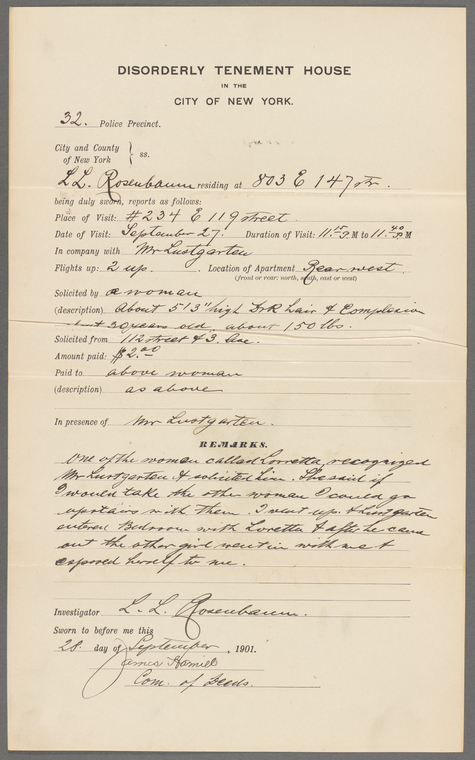 DISORDERLY TENEMENT HOUSE
IN THE
CITY OF NEW YORK.
32. Police Precinct.
City and County
of New York } ss.
L L. Rosenbaum residing at 803 E 147 str.
being duly sworn, reports as follows:
Place of Visit: #234 E 119 street.
Date of Visit: September 27. Duration of Visit: 11.15 P.M to 11.40 P.M
In company with Mr Lustgarten
Flights up: 2 up. Location of Apartment Rear west.
(front or rear: north, south, east or west)
Solicited by a woman
(description) About 5'3" high Drk hair & Complexion
about 30 years old, about 150 lbs.
Solicited from 112 street & 3. Ave.
Amount paid: $2.00
Paid to above woman
(description) as above
In presence of Mr Lustgarten.
REMARKS.
One of the women called Lorretta, recognized
Mr Lustgarten & solicited him. She said if
I would take the other woman I could go
upstairs with them. I went up. & Lustgarten
entered Bedroom with Loretta & after he came
out the other girl went in with me &
exposed herself to me.
Investigator L. L. Rosenbaum.
Sworn to before me this
28. day of September, 1901.
James Hamill
Com. of Deeds.